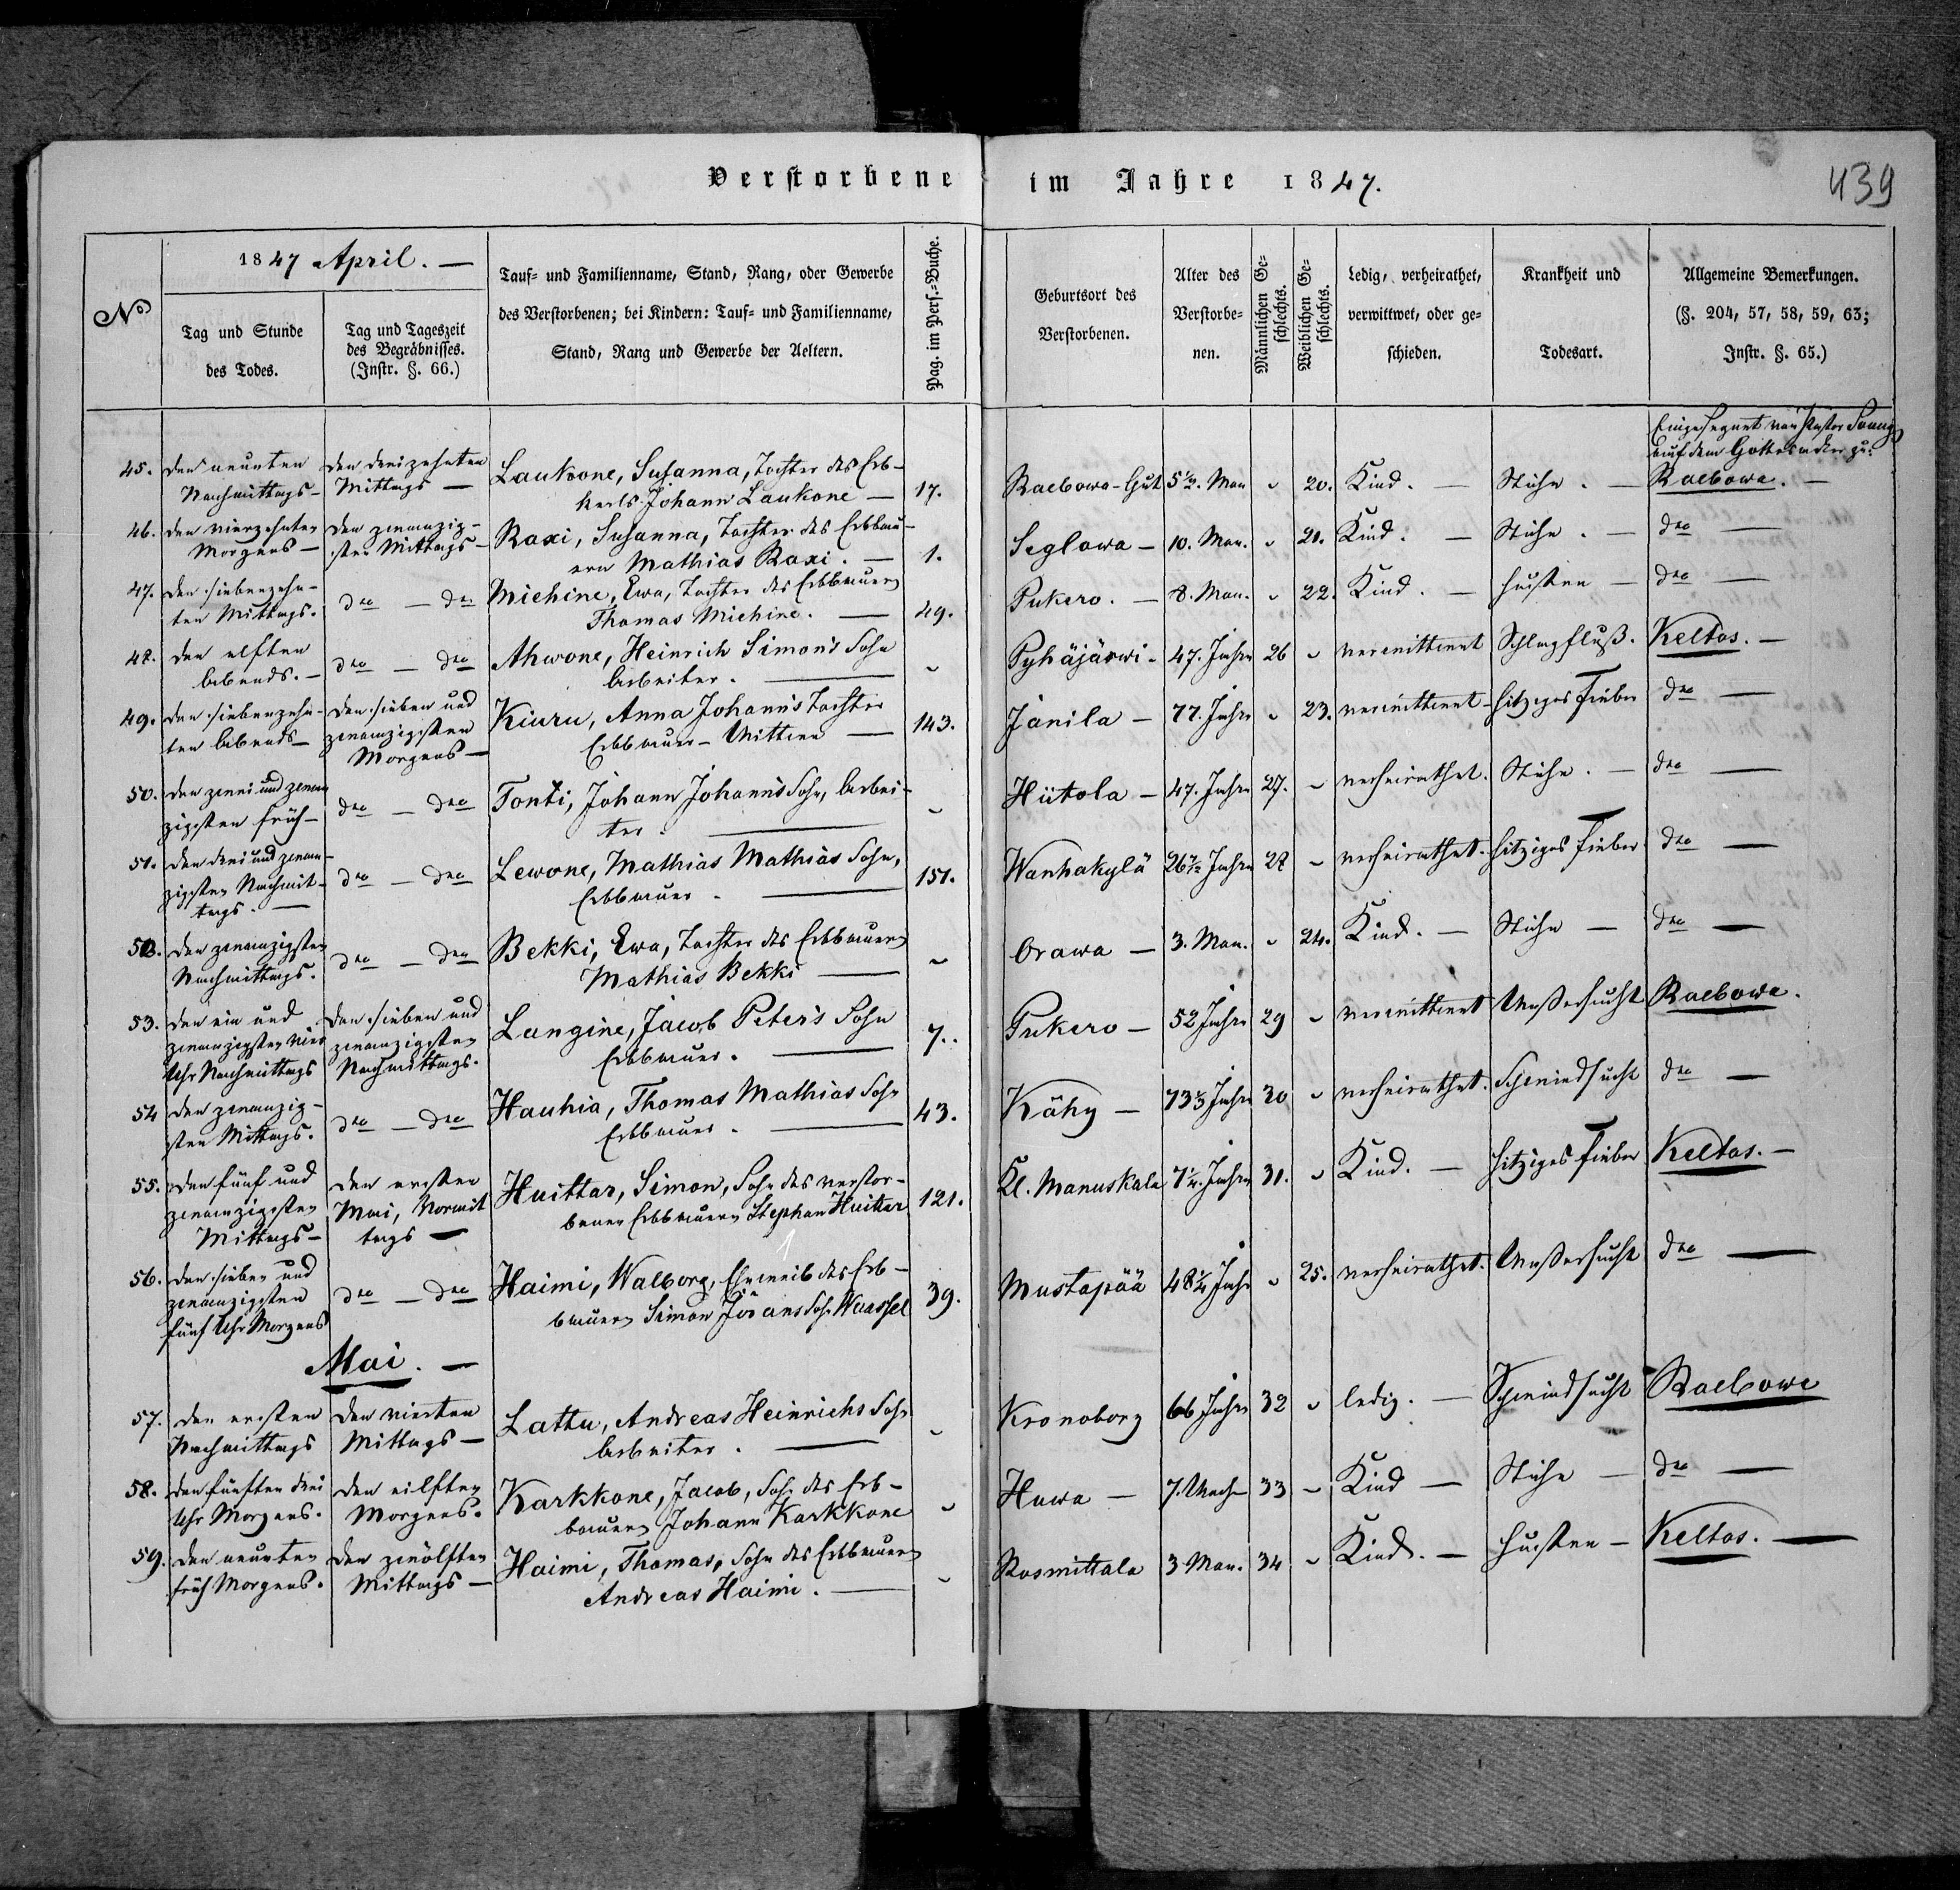 Verstorbene im Jahre 1847.
439
No
1847 April. —
Tag und Stunde
des Todes.
Tag und Tageszeit
des Begräbnisses.
(Instr. §. 66.)
Tauf= und Familienname, Stand, Rang, oder Gewerbe
des Verstorbenen; bei Kindern: Tauf= und Familienname,
Stand, Rang und Gewerbe der Aeltern.
Pag. im Pers.=Buche.
Geburtsort des
Verstorbenen.
Alter des
Verstorbe=
nen.
Männlichen Ge=
schlechts.
Weiblichen Ge=
schlechts.
Ledig, verheirathet,
verwittwet, oder ge=
schieden.
Krankheit und
Todesart.
Allgemeine Bemerkungen.
(§. 204, 57, 58, 59, 63;
Instr. §. 65.)
45.
den neunten
Nachmittags —
den dreizehnten
Mittags —
Laukone, Susanna, Tochter des Erb-
kerls Johann Laukone —
17.
Raebowa-Gut
5½. Mon
20.
Kind. —
Stühn. —
Eingesegnet von Pastor
auf dem Gottesacker zu:
Raebowa. —
46.
den vierzehnten
Morgens —
den zwanzig-
sten Mittags —
Raxi, Susanna, Tochter des Erbbau-
ern Mathias Raxi. —
1.
Seglowa —
10. Mon.
21.
Kind. —
Stühn. —
dto —
47.
den siebenzehn-
ten Mittags.
dto — dto
Miehine, Ewa, Tochter des Erbbauern
Thomas Miehine. —
49.
Pukero. —
8. Mon.
22.
Kind. —
Husten —
dto —
48.
den elften
Abends. —
dto — dto
Ahwone, Heinrich Simon's Sohn
Arbeiter. —
Pyhäjärwi -
47. Jahre
26
verwittwet
Schlagfluß.
Keltos. —
49.
den siebenzehn-
ten Abends —
den sieben und
zwanzigsten
Morgens —
Kiuru, Anna Johann's Tochter
Erbbauer-Wittwe —
143.
Janila —
77. Jahre
23.
verwittwet —
hitziges Fieber
dto —
50.
den zwei und zwan
zigsten früh —
dto — dto
Tonti, Johann Johann's Sohn, Arbei-
ter. —
Hiitola —
47. Jahre
27.
verheirathet.
Stühn. —
dto —
51.
den drei und zwan-
zigsten Nachmit-
tags. —
dto — dto
Lewone, Mathias Mathias Sohn,
Erbbauer. —
151.
Wanhakylä
28
verheirathet.
hitziges Fieber
dto —
52.
den zwanzigsten
Nachmittags.
dto — dto
Bekki, Ewa, Tochter des Erbbauern
Mathias Bekki —
Orawa —
3. Mon.
24.
Kind. —
Stühn —
dto —
53.
den ein und
zwanzigsten vier
Uhr Nachmittags
den sieben und
zwanzigsten
Nachmittags.
Langine, Jacob Peter's Sohn
Erbbauer. —
7..
Pukero —
52 Jahre
29
verwittwet
Wassersucht
Raebowa.
54
den zwanzig-
sten Mittags.
dto — dto
Hauhia, Thomas Mathias Sohn
Erbbauer. —
43.
Kähy —
73⅓ Jahre
30
verheirathet.
Schwindsucht
dto —
55.
den fünf und
zwanzigsten
Mittags —
den ersten
Mai, Vormit
tags —
Huittar, Simon, Sohn des verstor-
benen Erbbauern Stephan Huittar
121.
Kl. Manuskala
31.
Kind. —
hitziges Fieber
Keltos. —
56.
den sieben und
zwanzigsten
fünf Uhr Morgens
dto — dto
Haimi, Walborg, Eheweib des Erb-
bauern Simon Johans Sohn Waassel
39.
Mustapää
48¼ Jahr
25.
verheirathet.
Wassersucht
dto —
Mai. —
57.
den ersten
Nachmittags
den vierten
Mittags —
Lattu, Andreas Heinrichs Sohn
Arbeiter. —
Kronoborg
66 Jahre
32
ledig. —
Schwindsucht
Raebowa
58.
den fünften drei
Uhr Morgens.
den eilften
Morgens.
Karkkone, Jacob, Sohn des Erb-
bauern Johann Karkkone
Huwa —
7. Woch —
33
Kind —
Stühn —
dto —
59.
den neunten
früh Morgens.
den zwölften
Mittags —
Haimi, Thomas, Sohn des Erbbauern
Andreas Haimi. —
Rosmittala
3 Mon.
34
Kind. —
Husten —
Keltos. —